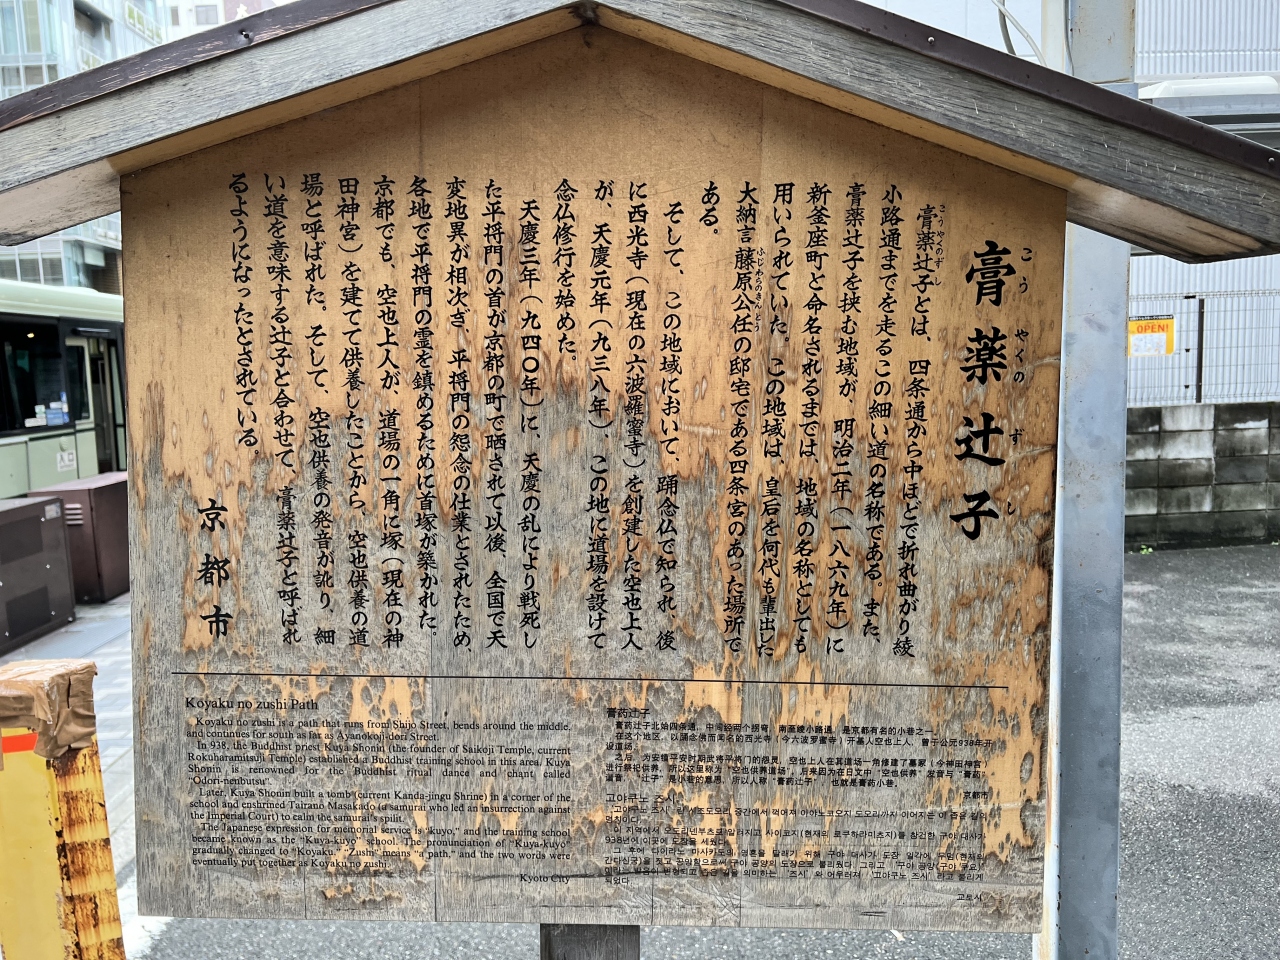 膏薬辻子
こうやくのずし
膏薬辻子とは、四条通から中ほどで折れ曲がり綾
こうやくのずし
小路通までを走るこの細い道の名称である。また、
膏薬辻子を挟む地域が、明治二年(一八六九年)に
新釜座町と命名されるまでは、地域の名称としても
用いられていた。この地域は、皇后を何代も輩出した
大納言藤原公任の邸宅である四条宮のあった場所で
ふじわらのきんとう
ある。
そして、この地域において、踊念仏で知られ、後
に西光寺(現在の六波羅蜜寺)を創建した空也上人
が、天慶元年(九三八年)、この地に道場を設けて
念仏修行を始めた。
天慶三年(九四〇年)に、天慶の乱により戦死し
た平将門の首が京都の町で晒されて以後、全国で天
変地異が相次ぎ、平将門の怨念の仕業とされたため、
各地で平将門の霊を鎮めるために首塚が築かれた。
京都でも、空也上人が、道場の一角に塚(現在の神
田神宮)を建てて供養したことから、空也供養の道
場と呼ばれた。そして、空也供養の発音が訛り、細
い道を意味する辻子と合わせて、膏薬辻子と呼ばれ
るようになったとされている。
京都市
Koyaku no zushi Path
Koyaku no zushi is a path that runs from Shijo Street, bends around the middle,
and continues for south as far as Ayanokoji-dori Street.
In 938, the Buddhist priest Kuya Shonin (the founder of Saikoji Temple, current
Rokuharamitsuji Temple) established a Buddhist training school in this area. Kuya
Shonin is renowned for the Buddhist ritual dance and chant called
"Odori-nenbutsu".
Later, Kuya Shonin built a tomb (current Kanda-jingu Shrine) in a corner of the
school and enshrined Tairano Masakado (a samurai who led an insurrection against
the Imperial Court) to calm the samurai's spilit.
The Japanese expression for memorial service is "kuyo," and the training school
became known as the "Kuya-kuyo" school. The pronunciation of "Kuya-kuyo"
gradually changed to "Koyaku." "Zushi" means "a path," and the two words were
eventually put together as Koyaku no zushi.
Kyoto City
膏药辻子
膏药辻子北始四条通，中间经两个拐弯，南至绫小路通，是京都有名的小巷之一。
在这个地区，以踊念佛而闻名的西光寺（今六波罗蜜寺）开基人空也上人，曾于公元938年开
设道场。
之后，为安镇平安时期武将平将门的怨灵，空也上人在其道场一角修建了墓冢（今神田神宫）
进行祭祀供养，所以这里称为"空也供养道场"，后来因为在日文中"空也供养"发音与"膏药"
谐音，"辻子"是小巷的意思，所以人称"膏药辻子"，也就是膏药小巷。
京都市
고야쿠노 즈시
'고야쿠노 즈시' 란 시조도오리 중간에서 꺾여져 아야노코오지 도오리까지 이어지는 이 좁은 길의
명칭이다.
이 지역에서 오도리넨부츠로 알려지고 사이코지(현재의 로쿠하라미츠지)를 창건한 구야 대사가
938년에 이곳에 도장을 세웠다.
그 후에 다이라노 마사카도의 영혼을 달래기 위해 구야 대사가 도장 일각에 무덤(현재의
간다신궁)을 짓고 공양함으로써 구야 공양의 도장으로 불리웠다. 그리고 '구야 공양(구야 구요)'
'즈시' 와 어우러져 '고야쿠노 즈시' 라고 불리게
되었다.
교토시
OPEN!
入口